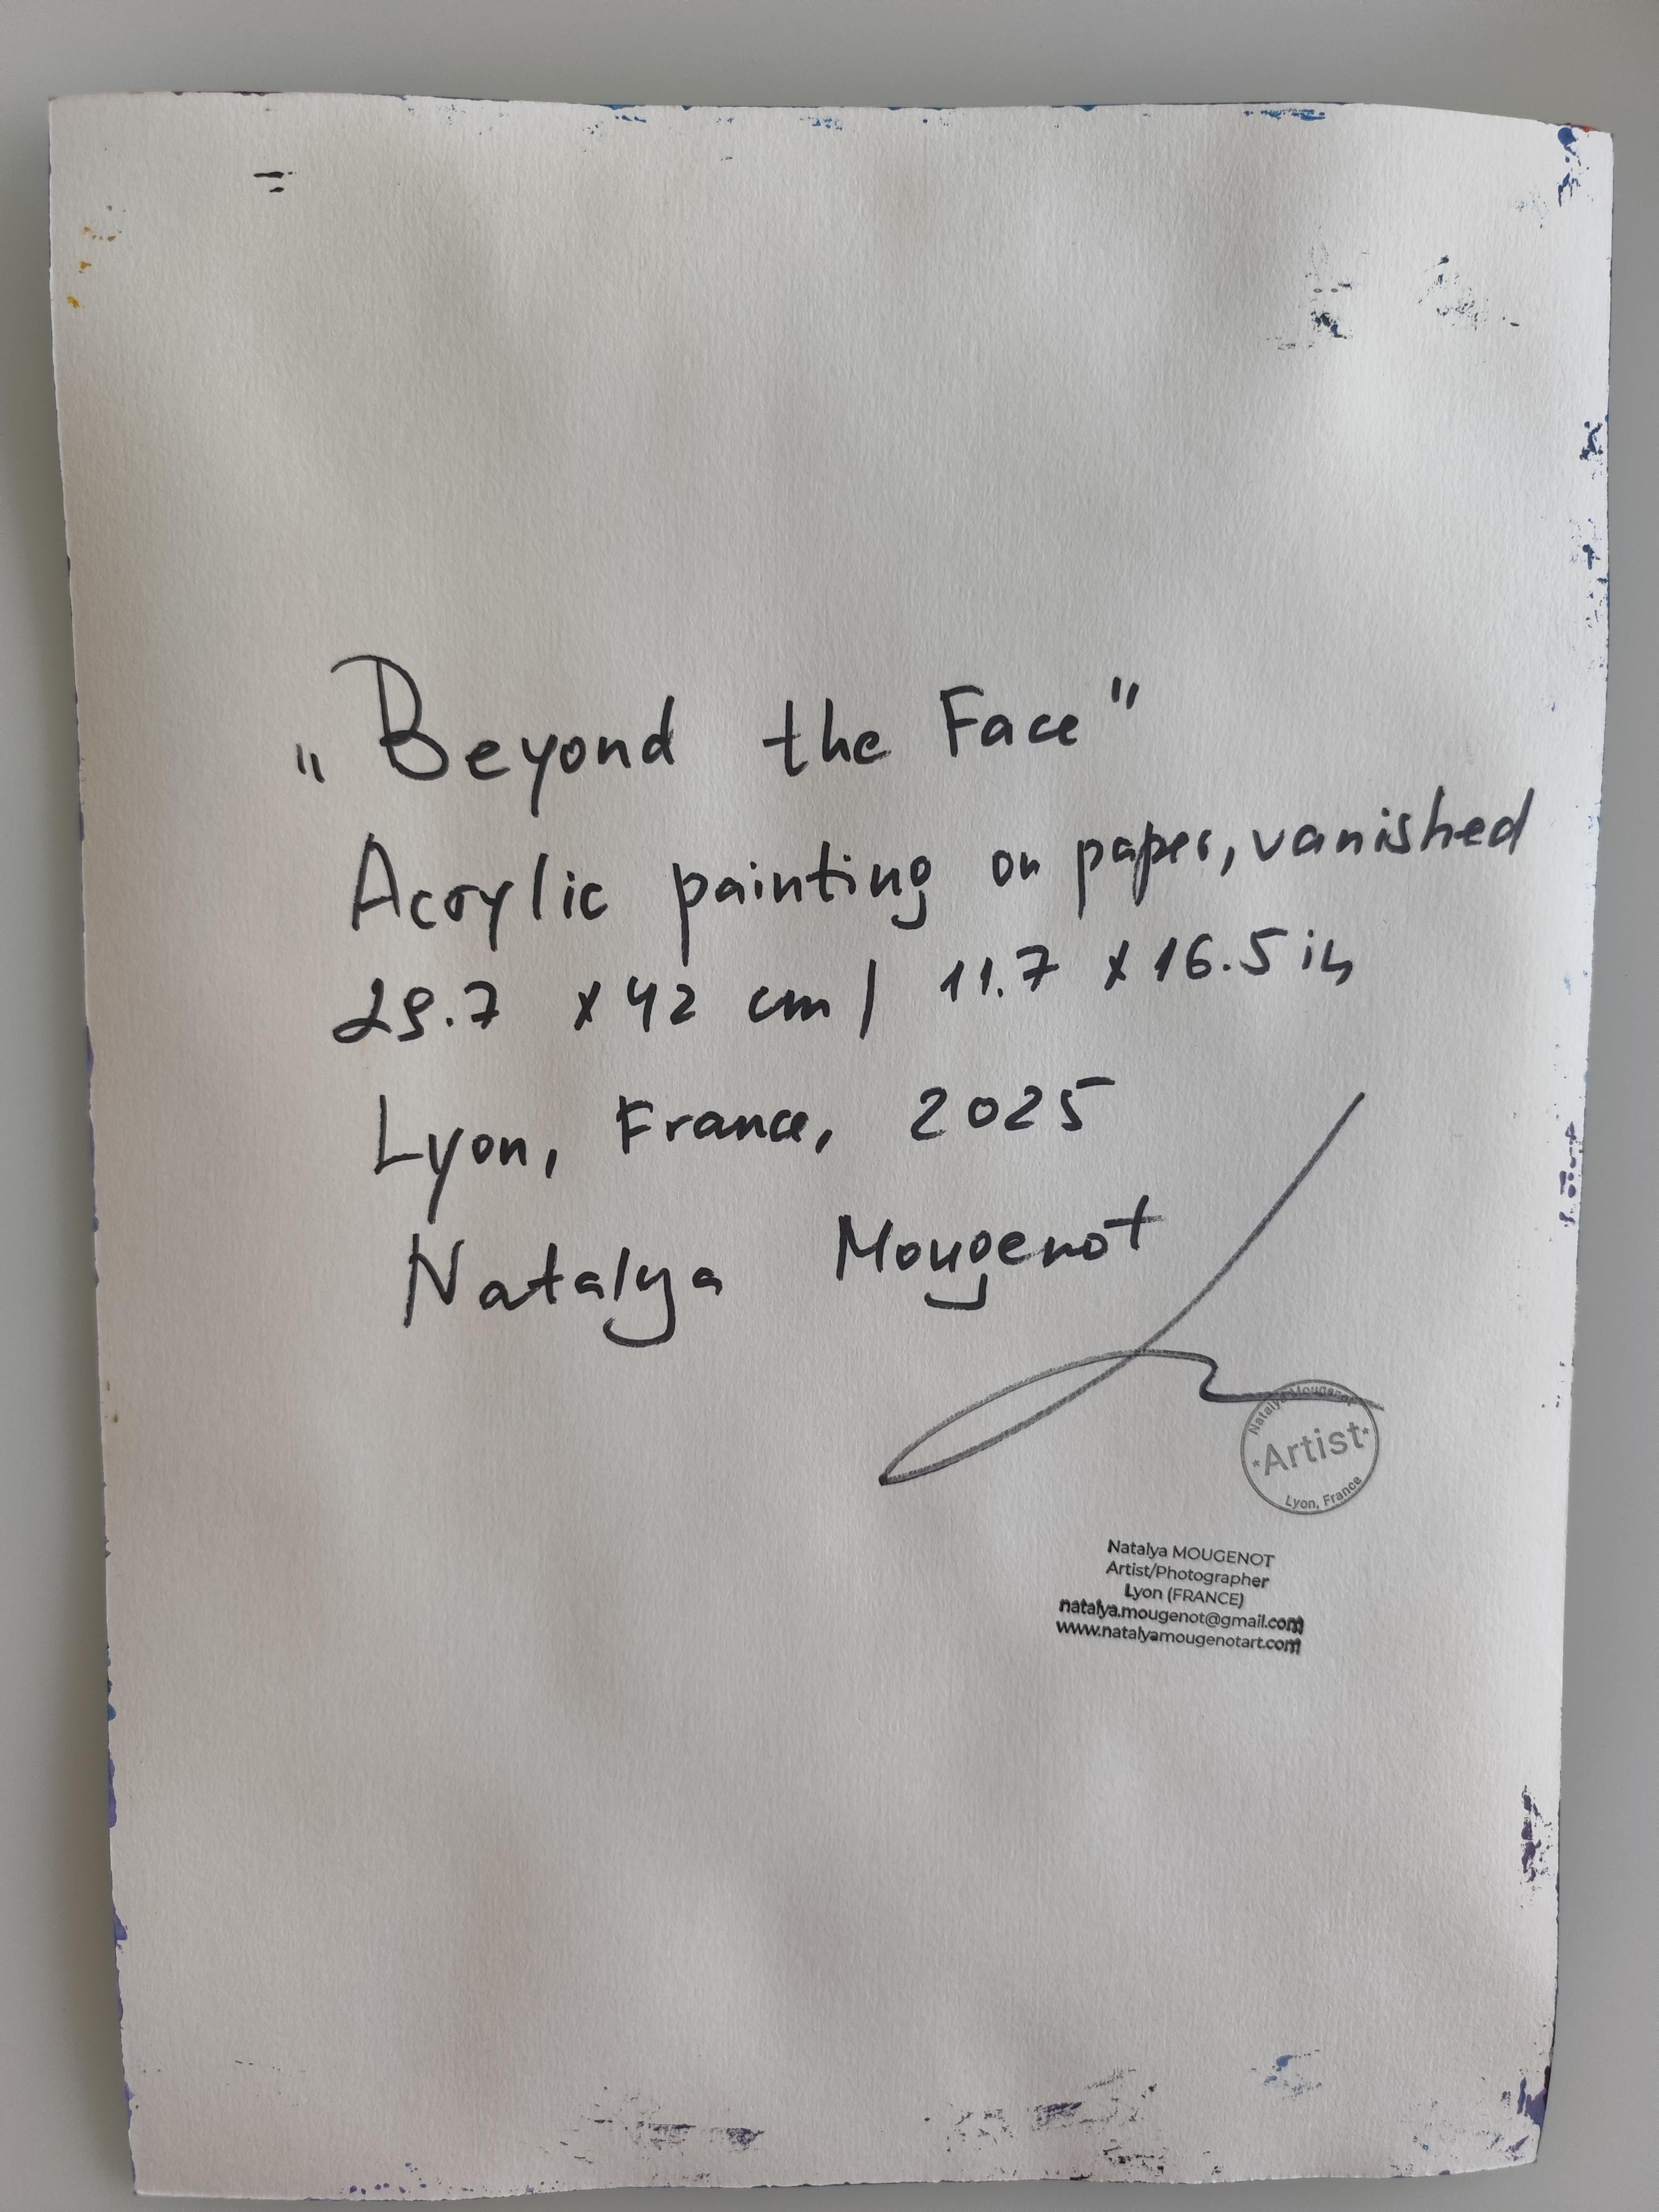 „Beyond the Face"
Acrylic painting on paper, vanished
29.7 x 42 cm / 11.7 x 16.5 in
Lyon, France, 2025
Natalya Mougenot
Natalya Mougenot
*Artist*
Lyon, France
Natalya MOUGENOT
Artist/Photographer
Lyon (FRANCE)
natalya.mougenot@gmail.com
www.natalyamougenotart.com